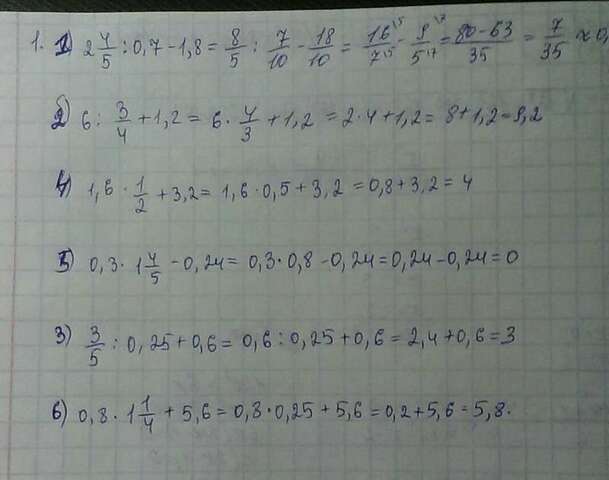 1. 1) 2 4/5 : 0,7 - 1,8 = 8/5 : 7/10 - 18/10 = 16/7 - 9/5 = 80-63/35 = 7/35 ≈ 0,
2) 6 : 3/4 + 1,2 = 6 · 4/3 + 1,2 = 2·4+1,2 = 8+1,2=9,2
4) 1,6 · 1/2 + 3,2 = 1,6·0,5 + 3,2 = 0,8 + 3,2 = 4
5) 0,3 · 1 4/5 - 0,24 = 0,3·0,8 - 0,24 = 0,24 - 0,24 = 0
3) 3/5 : 0,25 + 0,6 = 0,6 : 0,25 + 0,6 = 2,4 + 0,6 = 3
6) 0,8 · 1 1/4 + 5,6 = 0,8·0,25 + 5,6 = 0,2 + 5,6 = 5,8.